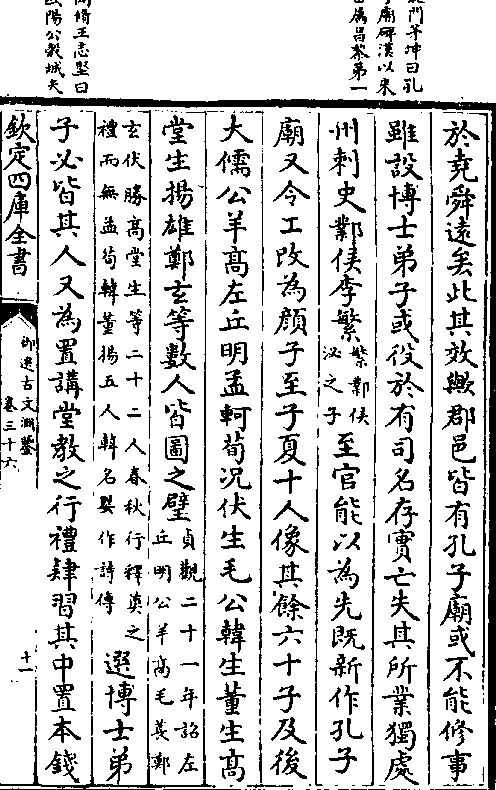 門茅坤曰孔
廟碑漢以來
屬昌黎第一
脩王志堅曰
陽公穀城夫
於堯舜遠矣此其效歟郡邑皆有孔子廟或不能修事
雖設博士弟子或役於有司名存實亡失其所業獨處
州刺史鄴侯李繁繁鄴侯泌之子至官能以為先既新作孔子
廟又令工改為顏子至子夏十人像其餘六十子及後
大儒公羊高左丘明孟軻荀况伏生毛公韓生董生高
堂生揚雄鄭玄等數人皆圖之壁貞觀二十一年詔左丘明公羊高毛萇鄭
玄伏勝高堂生等二十二人春秋行釋奠之禮而無孟荀韓董揚五人韓名嬰作詩傳選博士弟
子必皆其人又為置講堂教之行禮肄習其中置本錢
欽定四庫全書
御選古文淵鑒
卷三十六
十一